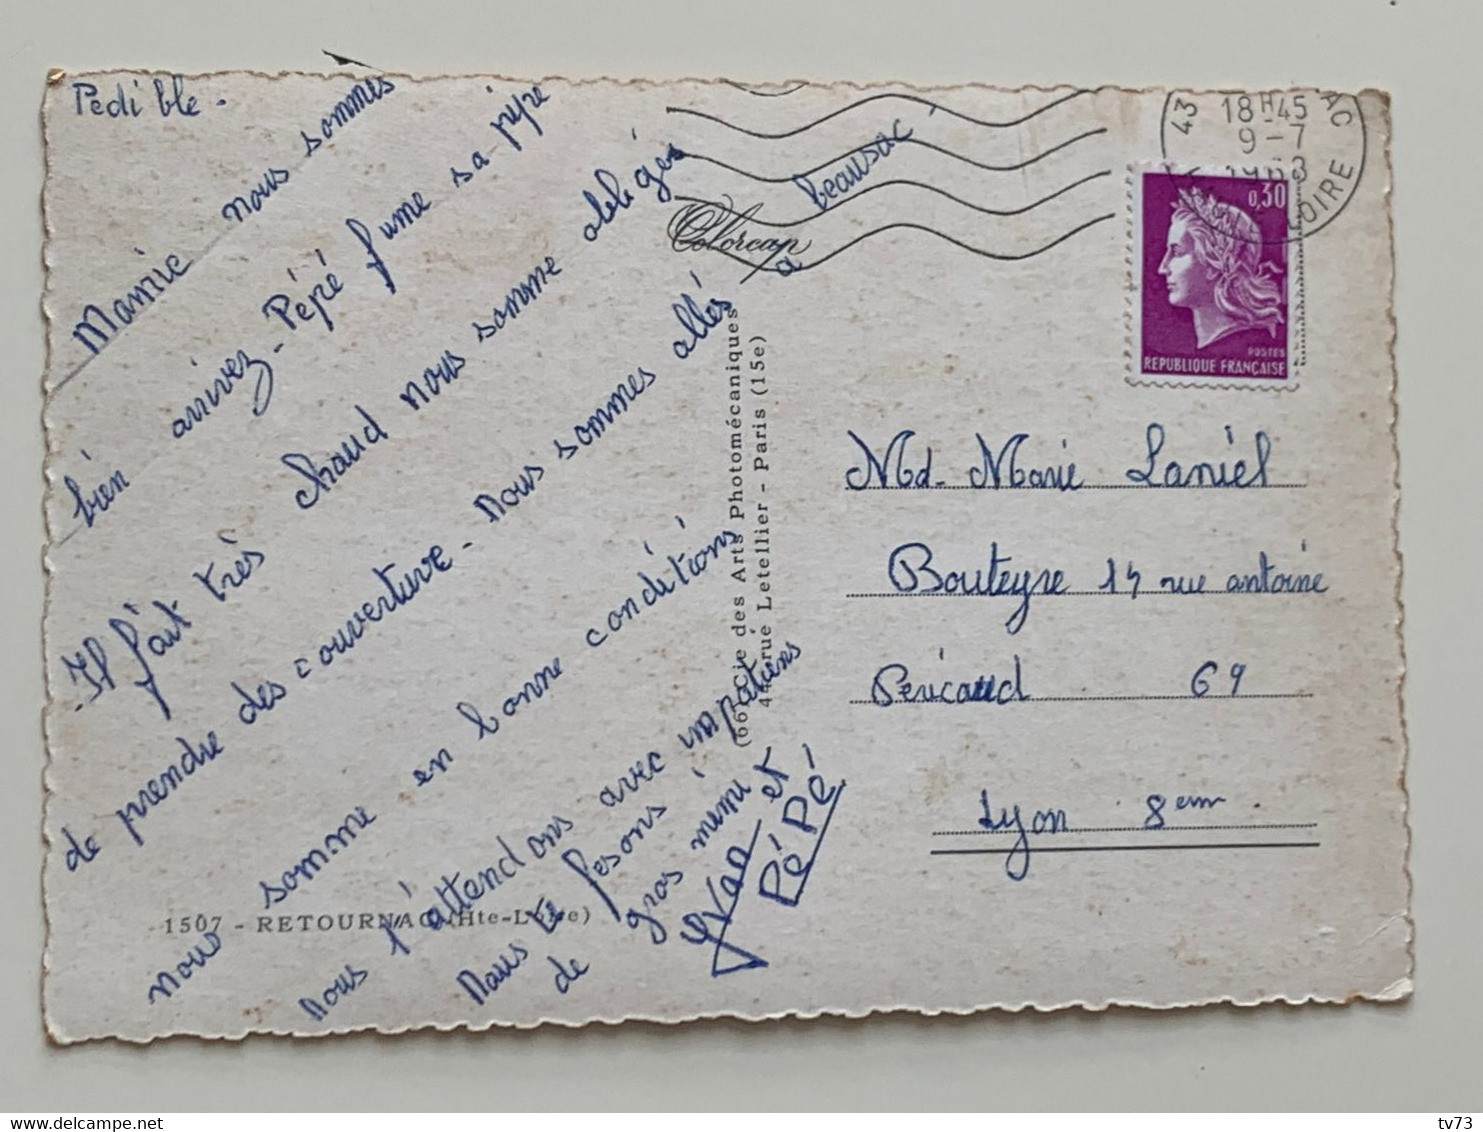 Pedible.
Mamie nous sommes
bien arrivez - Pépé fume sa pipe
- Il fait très chaud nous somme obligés
de prendre des couverture - nous sommes allés a beausac
nous somme en bonne conditions
nous t'attendons avec impatiens
nous te fesons
de gros mimi
Yvan et
PéPé
1507 - RETOURNAC (Hte-Loire)
Colorcap
Cie des Arts Photomécaniques
44, rue Letellier - Paris (15e)
43
18H45
9-7
1968
LOIRE
0,30
POSTES
REPUBLIQUE FRANÇAISE
Md. Marie Laniel
Bouteyre 14 rue antoine
Péricaud 69
Lyon 8em.
delcampe.net
tv73